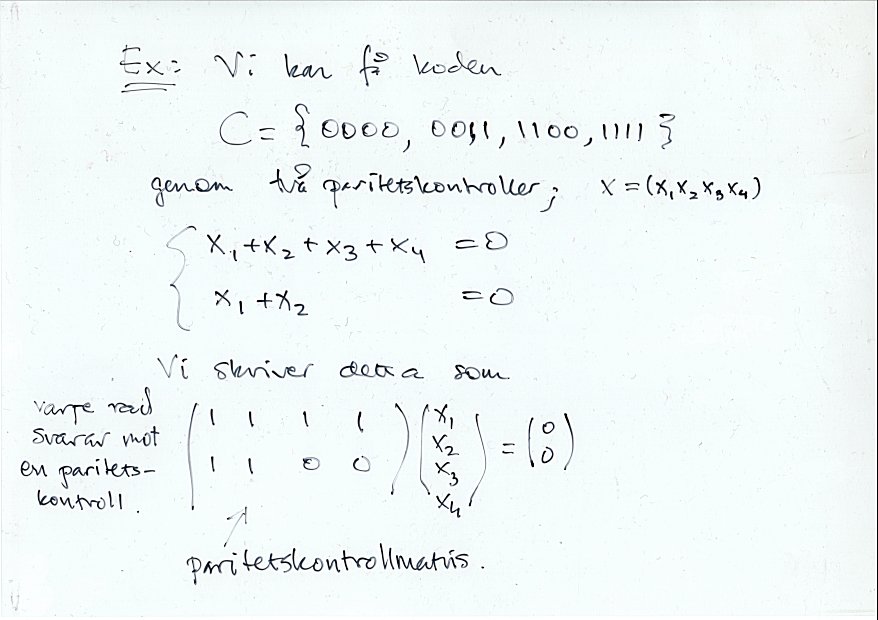 Ex: Vi kan få koden
C = { 0000, 0011, 1100, 1111 }
genom två paritetskontroller; x = (x₁x₂x₃x₄)
x₁ + x₂ + x₃ + x₄ = 0
x₁ + x₂ = 0
Vi skriver detta som
varje rad
svarar mot
en paritets-
kontroll.
( 1 1 1 1 ) ( x₁ ) = ( 0 )
( 1 1 0 0 ) ( x₂ ) ( 0 )
x₃
x₄
paritetskontrollmatris.